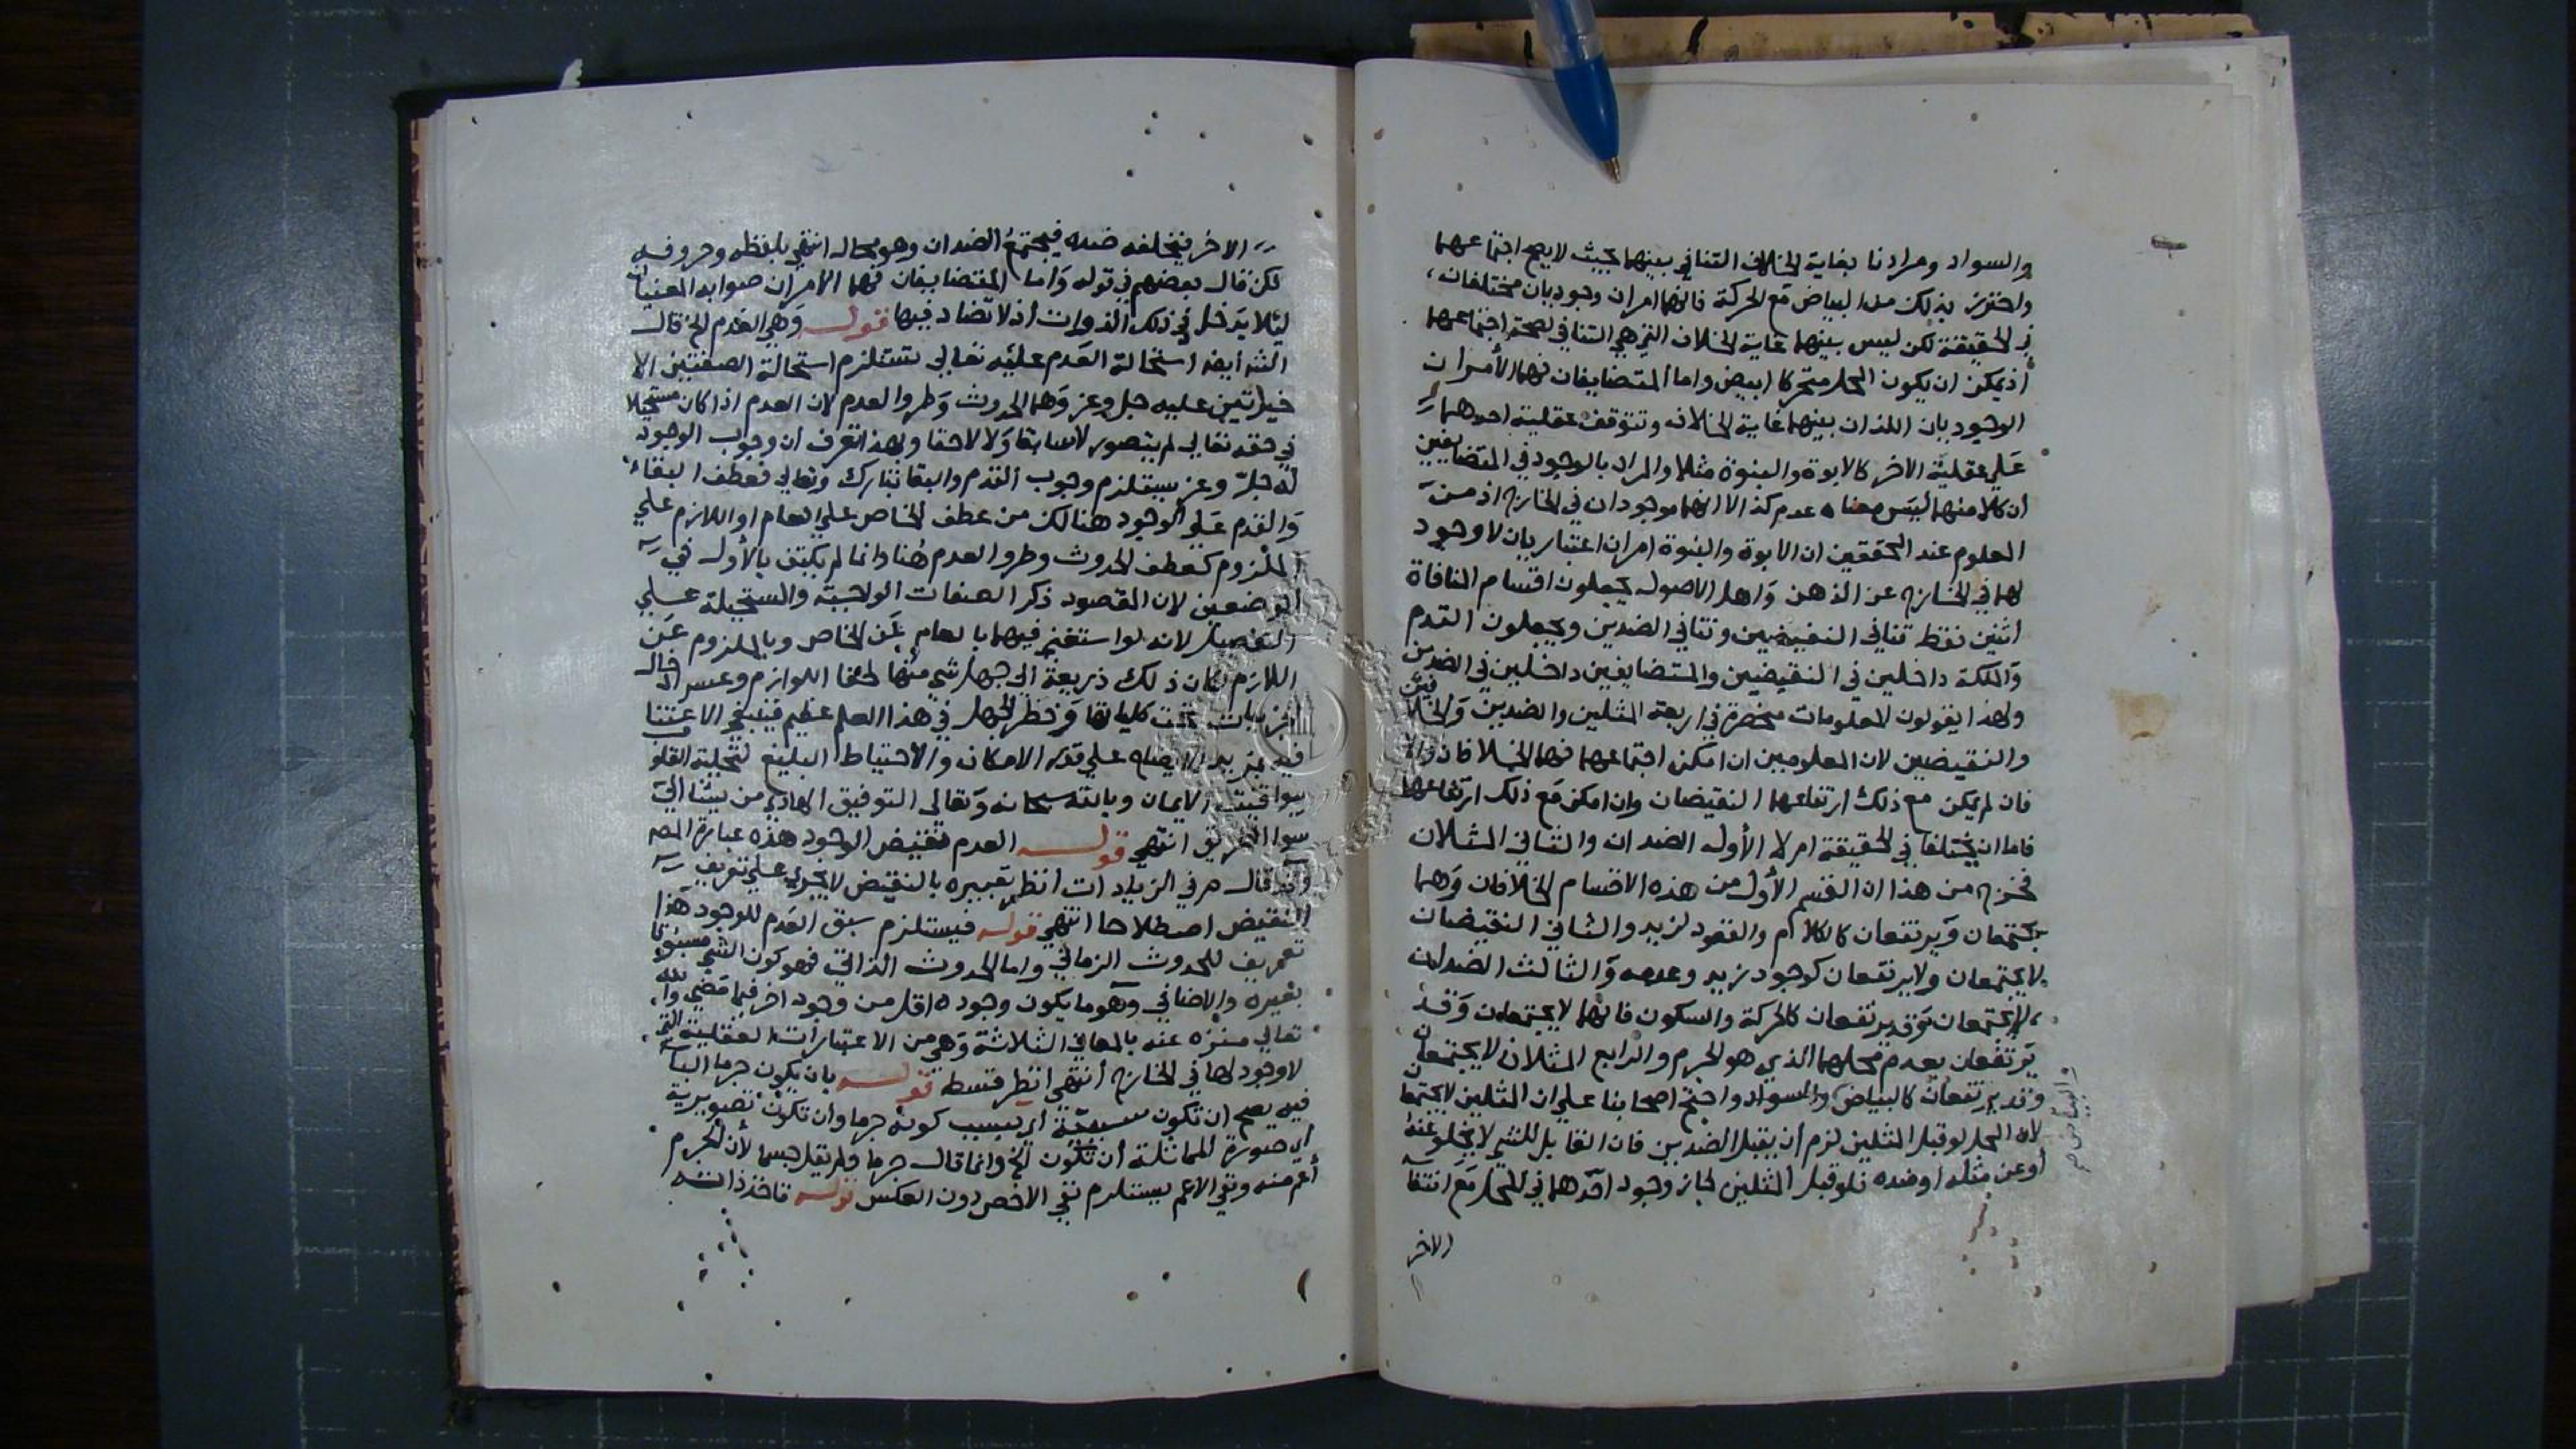 والسواد ومرادنا بغاية الخلاف التنافي بينهما بحيث لا يصح اجتماعهما
واحترز بذلك من البياض مع الحركة فانهما امران وجوديان مختلفان
في الحقيقة لكن ليس بينهما غاية الخلاف التي هي التنافي لصحة اجتماعهما
اذ يمكن ان يكون المحل متحركا ابيض واما المتضايفان فهما الأمران
الوجوديان اللذان بينهما غاية الخلاف وتتوقف عقلية احدهما
على عقلية الاخر كالابوة والبنوة مثلا والمراد بالوجود في المتضايفين
ان كلا منهما ليس معناه عدم كذا لا انهما موجودان في الخارج اذ من
المعلوم عند المحققين ان الابوة والبنوة امران اعتباريان لا وجود
لهما في الخارج عن الذهن واهل الاصول يجعلون اقسام المنافاة
اثنين فقط تنافي النقيضين وتنافي الضدين ويجعلون العدم
والملكة داخلين في النقيضين والمتضايفين داخلين في الضدين
ولهذا يقولون المعلومات منحصرة في اربعة المثلين والضدين والخلافين
والنقيضين لان المعلومين ان امكن اجتماعهما فهما الخلافان والا
فان لم يمكن مع ذلك ارتفاعهما النقيضان وان امكن مع ذلك ارتفاعهما
فاما ان يختلفا في الحقيقة ام لا الأول الضدان والثاني المثلان
فخرج من هذا ان القسم الأول من هذه الاقسام الخلافان وهما
يجتمعان ويرتفعان كالكلام والقعود لزيد والثاني النقيضان
لا يجتمعان ولا يرتفعان كوجود زيد وعدمه والثالث الضدان
لا يجتمعان وقد يرتفعان كالحركة والسكون فانهما لا يجتمعان وقد
يرتفعان بعدم محلهما الذي هو الجرم والرابع المثلان لا يجتمعان
وقد يرتفعان كالبياض والسواد واحتج اصحابنا على ان المثلين لا يجتمعا
لان المحل لو قبل المثلين لزم أن يقبل الضدين فان القابل للشي لا يخلو عنه
أو عن مثله او ضده فلو قبل المثلين لجاز وجود احدهما في المحل مع انتفا
الاخر
والبياض صح
الاخر فيخلفه ضده فيجتمع الضدان وهو محال انتهي بلفظه وحروفه
لكن قال بعضهم في قوله واما المتضايفان فهما الامران صوابه المعنيان
ليلا يدخل في ذلك الذوات اذ لا تضاد فيها قوله وهي العدم الخ قال
ايضا استحالة العدم عليه تعالي تستلزم استحالة الصفتين الا
خيرتين عليه جل وعز وهما الحدوث وطرو العدم لان العدم اذا كان مستحيلا
في حقه تعالي لم يتصور لا سابقا ولا لاحقا وبهذا تعرف ان وجوب الوجود
له جل وعز يستلزم وجوب القدم والبقا تبارك وتعالي فعطف البقاء
والقدم على الوجود هنالك من عطف الخاص على العام او اللازم على
الملزوم كعطف الحدوث وطرو العدم هنا وانما لم يكتف بالأول في
الموضعين لان المقصود ذكر الصفات الواجبة والمستحيلة على
التفصيل لانه لو استغني فيهما بالعام عن الخاص وبالملزوم عن
اللازم لكان ذلك ذريعة الى جهل شي منها لخفا اللوازم وعسر ادخال
الجزييات تحت كلياتها وخطر الجهل في هذا العلم عظيم فينبغي الاعتنا
فيه بمزيد الايضاح على قدر الامكان والاحتياط البليغ لتحلية القلوب
بيواقيت الايمان وبالله سبحانه وتعالي التوفيق الهادي من يشا الى
سوا الطريق انتهي قوله العدم نقيض الوجود هذه عبارة المص
وقد قال م في الزيادات انظر تعبيره بالنقيض لا يجري على تعريف
النقيض اصطلاحا انتهي قوله فيستلزم سبق العدم للوجود هذا
تعريف للحدوث الزماني واما الحدوث الذاتي فهو كون الشي مسبوقا
بغيره والاضافي وهو ما يكون وجوده اقل من وجود اخر فيما مضي والله
تعالي منزه عنه بالمعاني الثلاثة وهي من الاعتبارات العقلية التي
لا وجود لها في الخارج انتهي انظر قوله بان يكون جرما البا
فيه يصح ان تكون سببية اي بسبب كونه جرما وان تكون تصويرية
اي صورة المماثلة أن تكون الخ وانما قال جرما ولم يقل جسما لأن الجرم
أعم منه ونفي الاعم يستلزم نفي الاخص دون العكس قوله تاخذ ذاته